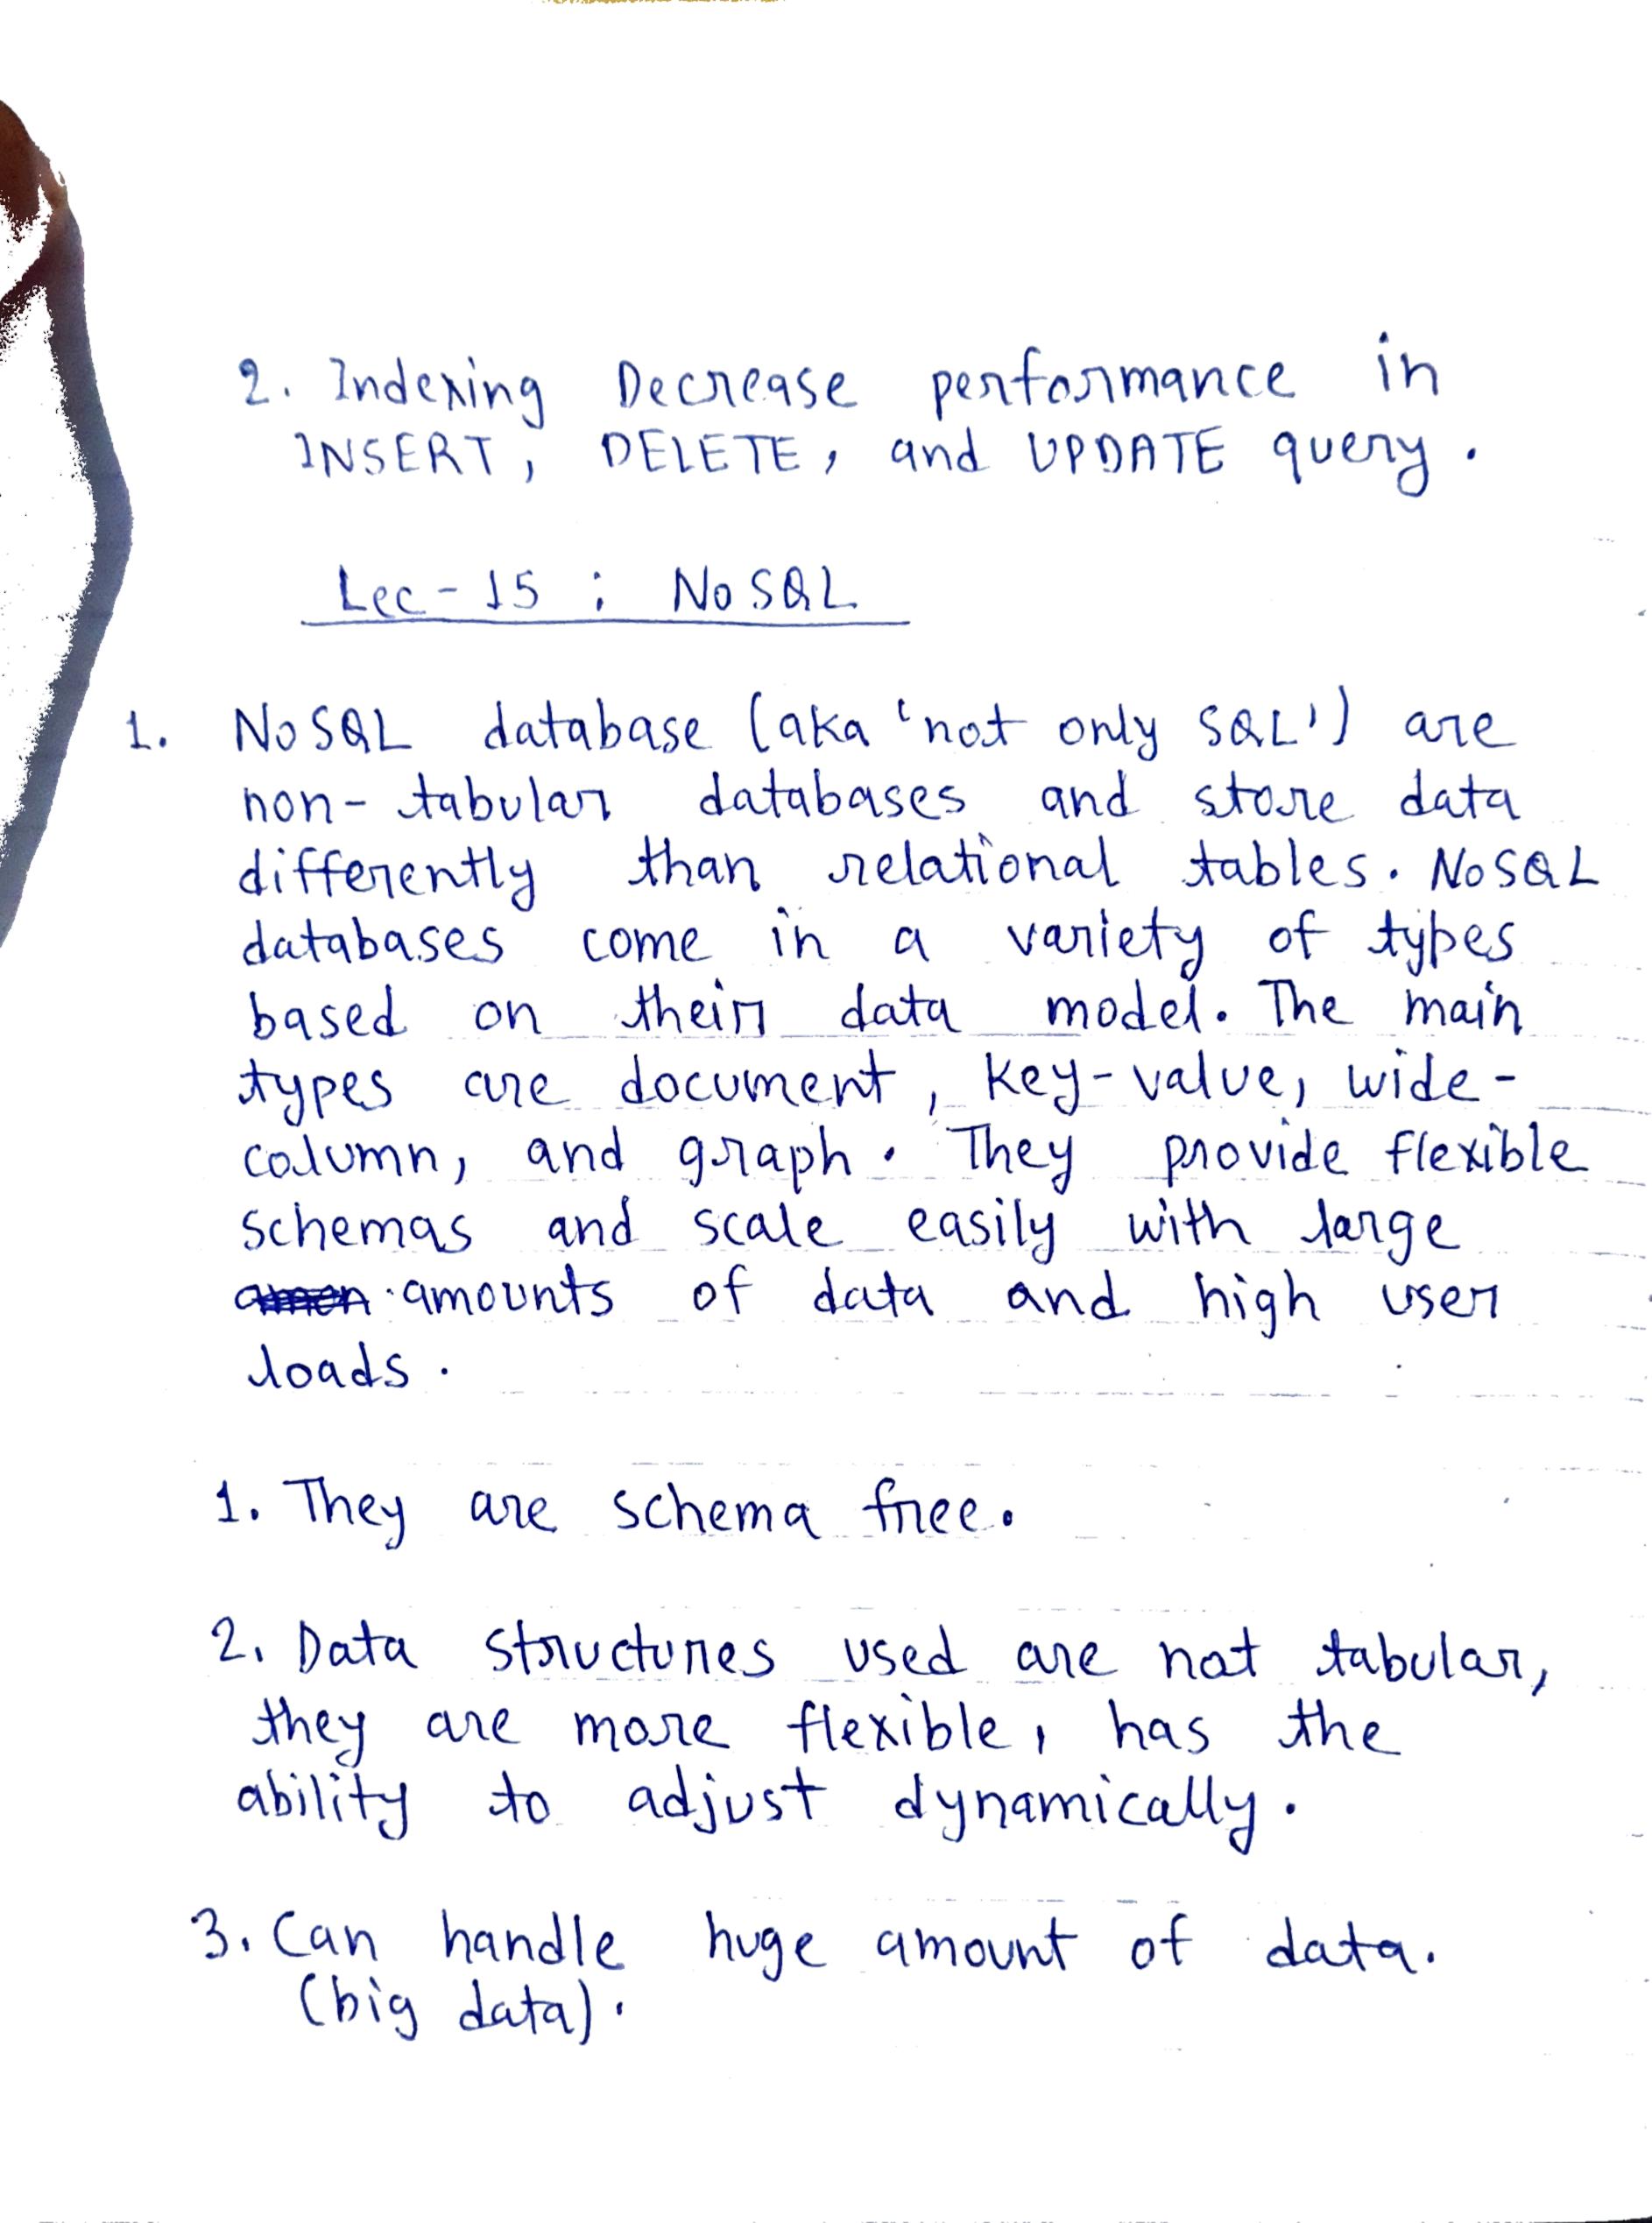 2. Indexing Decrease performance in
INSERT, DELETE, and UPDATE query.
Lec-15 : NoSQL
1. NoSQL database (aka 'not only SQL') are
non-tabular databases and store data
differently than relational tables. NoSQL
databases come in a variety of types
based on their data model. The main
types are document, key-value, wide-
column, and graph. They provide flexible
schemas and scale easily with large
amounts of data and high user
loads.
1. They are schema free.
2. Data structures used are not tabular,
they are more flexible, has the
ability to adjust dynamically.
3. Can handle huge amount of data.
(big data).